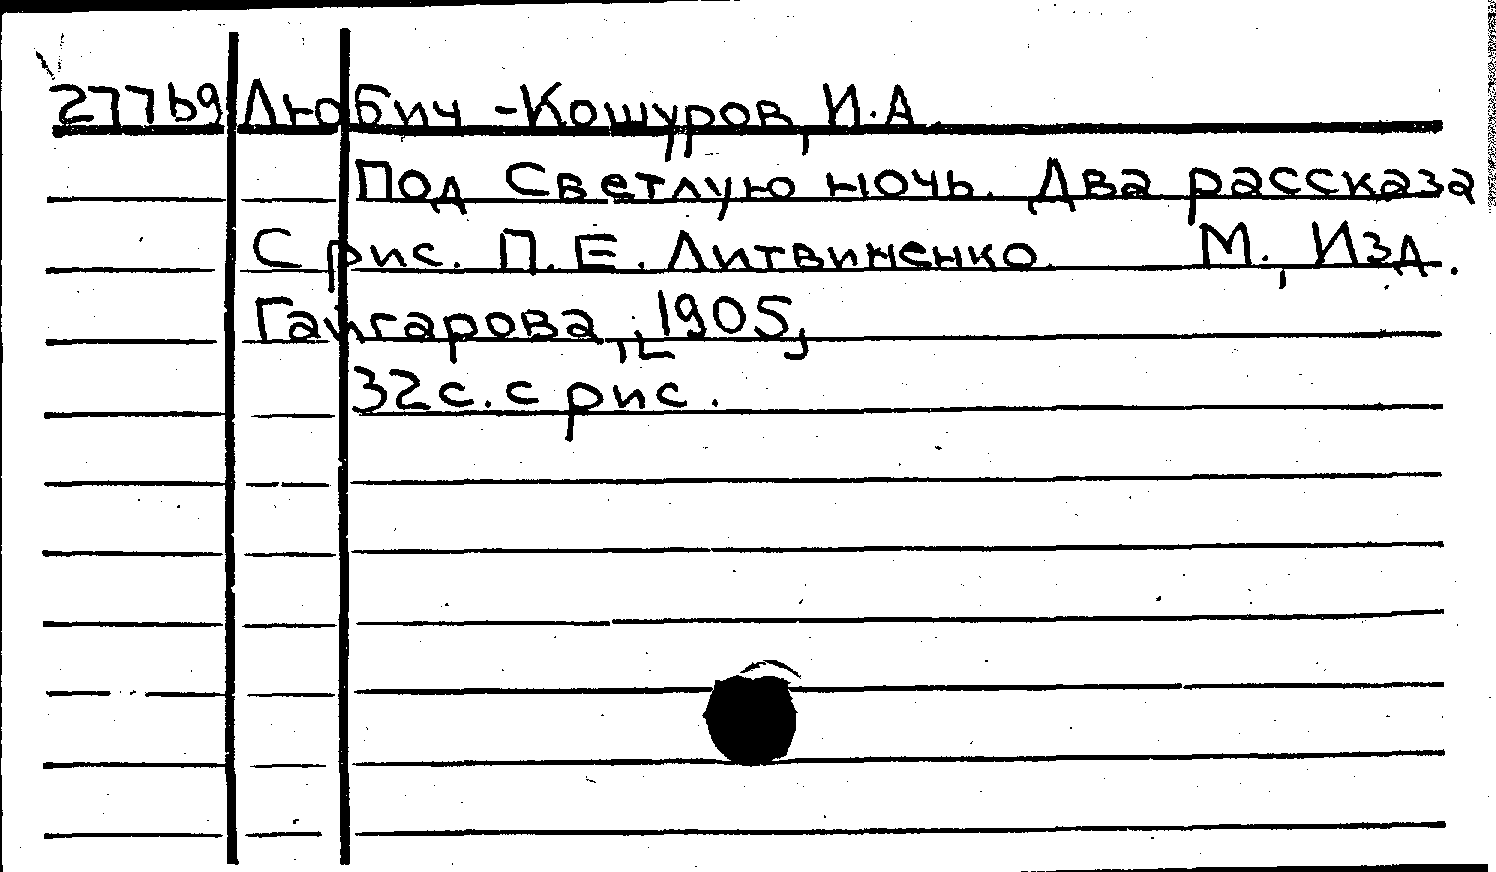 27769 Любич-Кошуров, И.А.
Под Светлую ночь. Два рассказа
С рис. П.Е. Литвиненко. М., Изд.
Гайгарова, 1905,
32с. с рис.